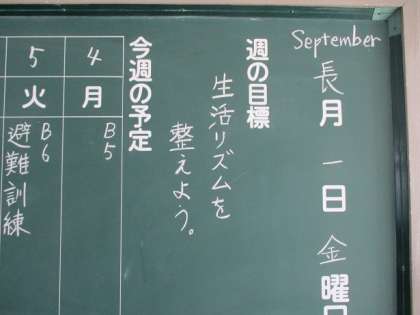 September
長月一日金曜日
週の目標
生活リズムを
整えよう。
今週の予定
4
月
B5
5
火
B6
避難訓練